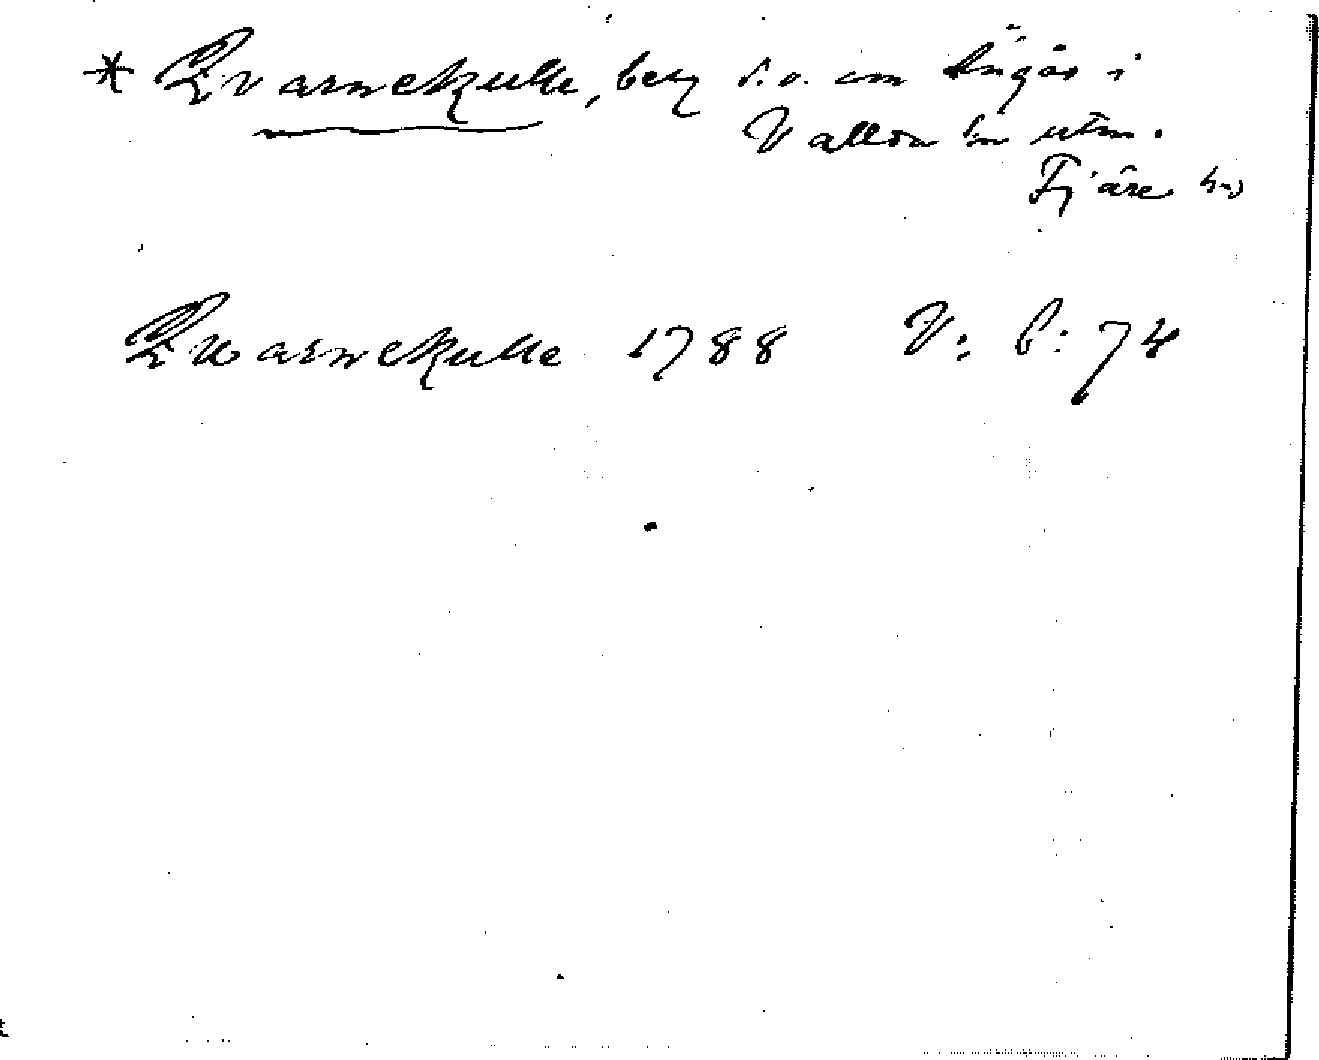 * Qvarnekulle, berg s.v. om Ängås i
Vallda sn utm.
Fjäre hd
Qwarnekulle 1788 V: 6: 74